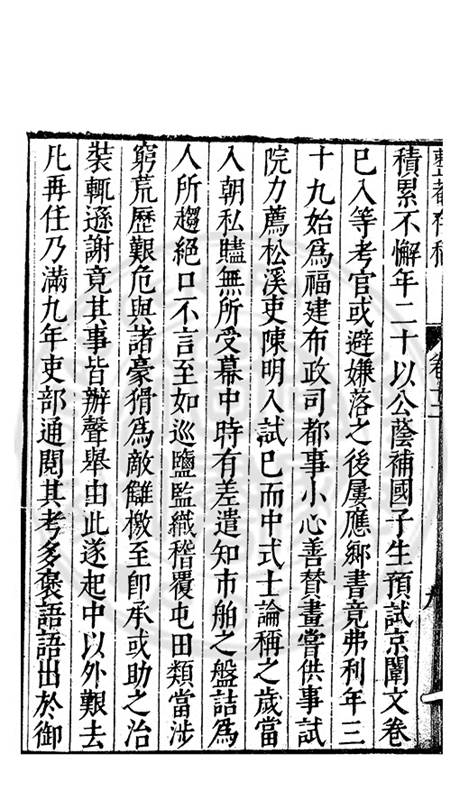 整菴存稿 卷十二 九
積累不懈年二十以公蔭補國子生預試京闈文卷
巳入等考官或避嫌落之後屢應鄉書竟弗利年三
十九始為福建布政司都事小心善贊畫嘗供事試
院力薦松溪吏陳明入試巳而中式士論稱之歲當
入朝私贐無所受幕中時有差遣知市舶之盤詰為
人所趨絕口不言至如巡鹽監織稽覆屯田類當涉
窮荒歷艱危與諸豪猾為敵讎檄至卽承或助之治
裝輒遜謝竟其事皆辦聲舉由此遂起中以外艱去
凡再任乃滿九年吏部通閱其考多褒語語出於御